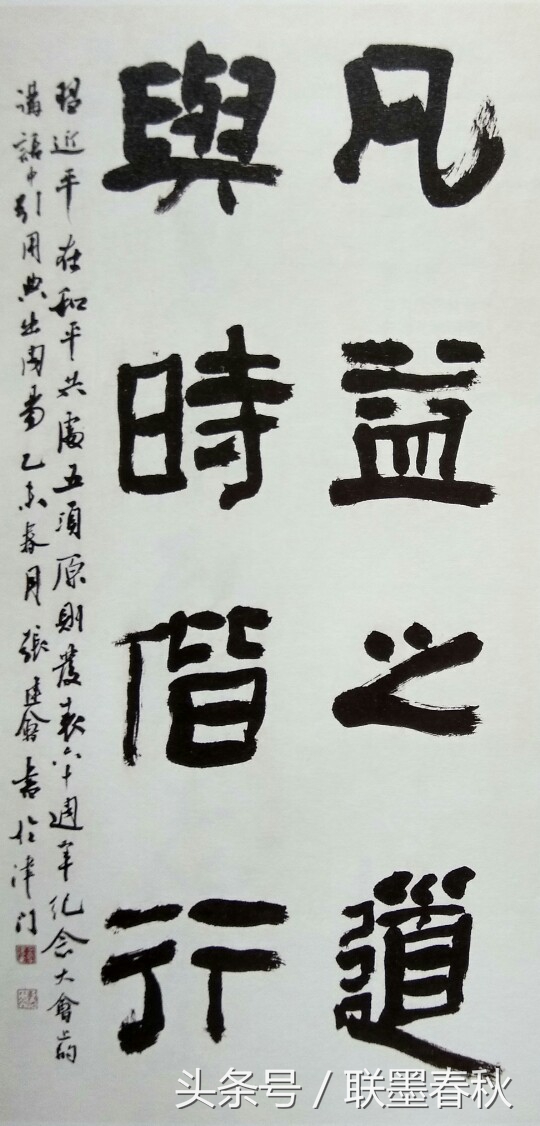 凡益之道
與時偕行
習近平在和平共處五項原則發表六十週年紀念大會上的
講話中引用典出周易乙未春月張建會書於津门
头条号 / 联墨春秋